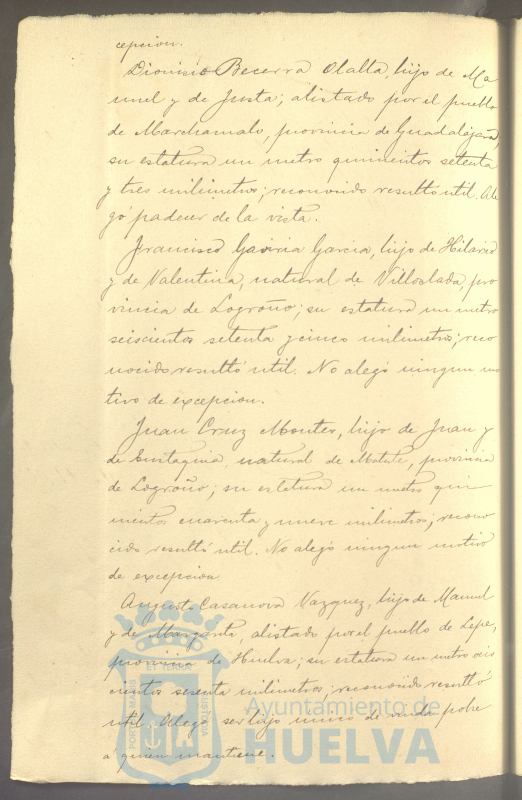 cepcion.
Dionisio Becerra Olalla, hijo de Ma
nuel y de Justa; alistado por el pueblo
de Marchamalo, provincia de Guadalajara,
su estatura un metro quinientos setenta
y tres milimetros; reconocido resultó util. Ale
gó padecer de la vista.
Francisco Gaviria Garcia, hijo de Hilario
y de Valentina, natural de Villoslada, pro
vincia de Logroño; su estatura un metro
seiscientos setenta y cinco milimetros; reco
nocido resultó util. No alegó ningun mo
tivo de excepcion.
Juan Cruz Montes, hijo de Juan y
de Eustaquia, natural de Matute, provincia
de Logroño; su estatura un metro qui
nientos cuarenta y nueve milimetros; recono
cido resultó util. No alegó ningun motivo
de excepcion
Augusto Casanova Vazquez, hijo de Manuel
y de Margarita, alistado por el pueblo de Lepe,
provincia de Huelva; su estatura un metro seis
cientos sesenta milimetros; reconocido resultó
util. Alegó ser hijo unico de viuda pobre
á quien mantiene.
PORTUS MARIS ET TERRAE CUSTODIA
Ayuntamiento de
HUELVA